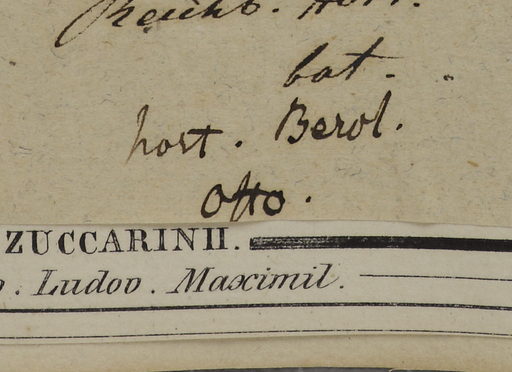 Reichb. Hort.
bat.
hort. Berol.
Otto.
ZUCCARINII.
. Ludov. Maximil.